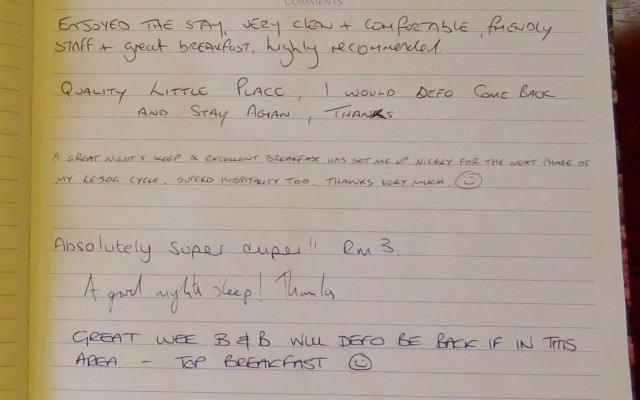 COMMENTS
ENJOYED THE STAY, VERY CLEAN + COMFORTABLE, FRIENDLY
STAFF + great BREAKFAST, highly recommended.
QUALITY LITTLE PLACE, I WOULD DEFO COME BACK
AND STAY AGAIN, THANKS
A GREAT NIGHT'S SLEEP & EXCELLENT BREAKFAST HAS SET ME UP NICELY FOR THE NEXT PHASE OF
MY LEJOG CYCLE. SUPERB HOSPITALITY TOO. THANKS VERY MUCH. ☺
Absolutely Super duper!! Rm 3.
A good nights sleep! Thanks
GREAT WEE B & B WILL DEFO BE BACK IF IN THIS
AREA - TOP BREAKFAST ☺